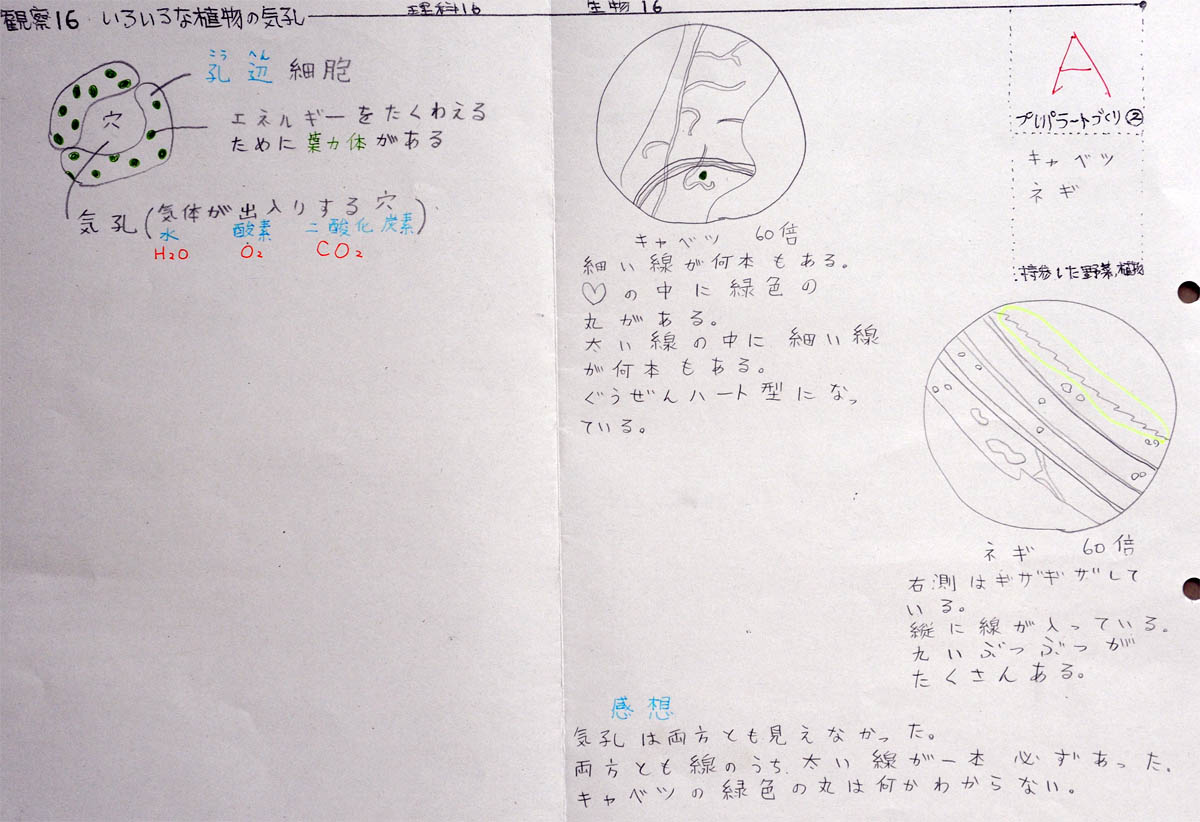 観察16 いろいろな植物の気孔
理科16
生物16
こう へん
孔辺細胞
穴
エネルギーをたくわえる
ために葉力体がある
気孔(気体が出入りする穴)
水 酸素 二酸化炭素
H₂O O₂ CO₂
A
プレパラートづくり②
キャベツ
ネギ
持参した野菜,植物
キャベツ 60倍
細い線が何本もある。
♡の中に緑色の
丸がある。
太い線の中に細い線
が何本もある。
ぐうぜんハート型になっ
ている。
ネギ 60倍
右測はギザギザして
いる。
縦に線が入っている。
丸いぶつぶつが
たくさんある。
感想
気孔は両方とも見えなかった。
両方とも線のうち、太い線が一本必ずあった。
キャベツの緑色の丸は何かわからない。